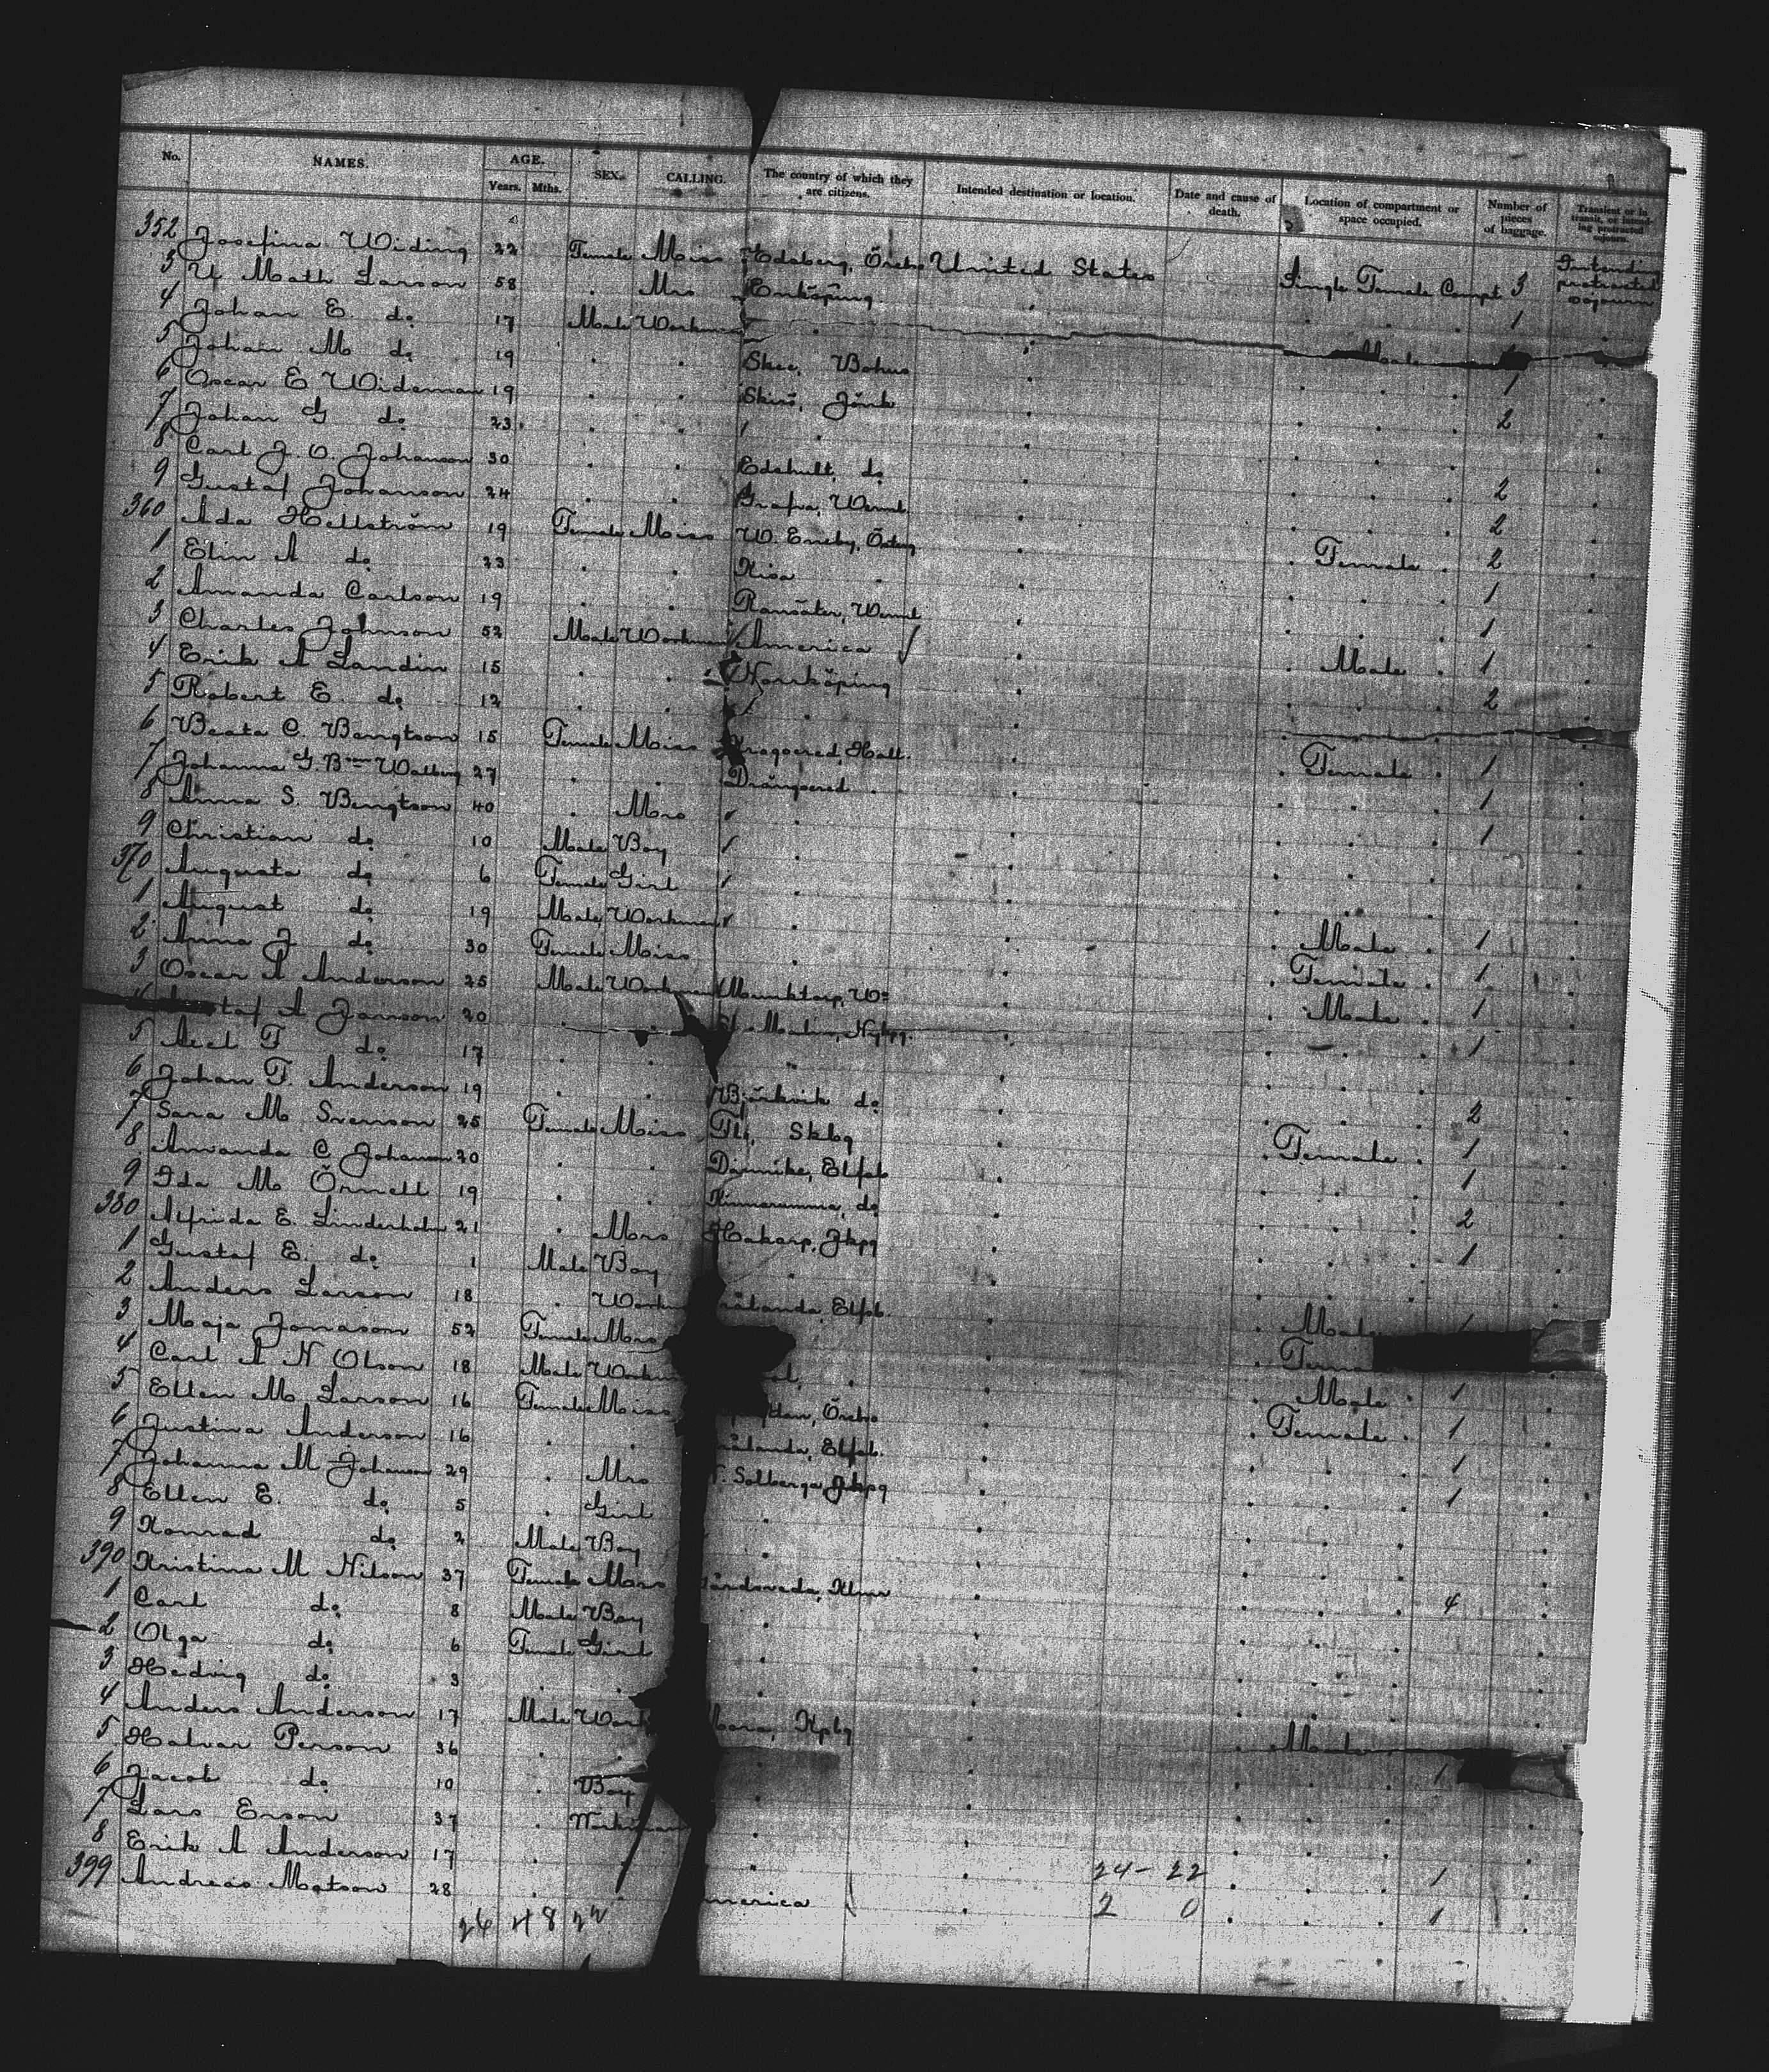 No. NAMES. AGE. Years. Mths. SEX. CALLING. The country of which they are citizens. Intended destination or location. Date and cause of death. Location of compartment or space occupied. Number of pieces of baggage. Transient or in transit, or intending protracted sojourn.
352 Josefina Widing 22 Female Miss Edsberg, Örebro United States Single Female Compt 3 Intending protracted sojourn
3 Math Larson 58 . Mrs Enköping . . . . 1 .
4 Johan E. do 17 Male Workman . . Male
5 Johan M do 19 . . Skee, Bohus . . . . 1 .
6 Oscar E Wideman 19 . . Skirö, Jönk . . . . 2 .
7 Johan G do 23 . . . . . . . .
8 Carl J. O. Johanson 30 . . Edshult, do . . . . 2 .
9 Gustaf Johanson 24 . . Grafva, Werml. . . . . 2 .
360 Ada Hellström 19 Female Miss W. Eneby, Österg . . Female . 2 .
1 Elin A do 23 . . Kisa . . . . . 1 .
2 Amanda Carlson 19 . . Ransäter, Werml . . . . 1 .
3 Charles Johnson 52 Male Workman America . . Male . 1 .
4 Erik A Landin 15 . . Norrköping . . . . 2 .
5 Robert E. do 12 . . . . . . .
6 Beata C. Bengtson 15 Female Miss Hall. . . Female . 1 .
7 Johanna G. Walling 27 . . Drängsered . . . . . 1 .
8 Anna S. Bengtson 40 . Mrs . . . . . 1 .
9 Christian do 10 Male Boy . . . . . .
370 Augusta do 6 Female Girl . . . . . .
1 August do 19 Male Workman . . . Male . 1 .
2 Anna J do 30 Female Miss . . . Female . 1 .
3 Oscar A Anderson 25 Male Workman Munktorp, W . . Male . 1 .
taf A Janson 20 . . Malm, Nykpg. . . . . 1 .
5 Axel T do 17 . . " . . . . .
6 Johan T. Anderson 19 . . Björkvik do . . . . 2 .
7 Sara M Svenson 25 Female Miss Skbg . . Female . 1 .
8 Amanda C Johanson 20 . . Dannike, Elfsb . . . . 1 .
9 Ida M Örnell 19 . . Kinnarumma, do . . . . 2 .
380 Alfrida E. Linderholm 21 . Mrs Hakarp, Jkpg . . . . 1 .
1 Gustaf E. do 1 Male Boy " . . . . .
2 Anders Larson 18 . Workm rålanda, Elfsb. . . Male 1
3 Maja Jonason 52 Female Mrs . . Fema
4 Carl A N Olson 18 Male Workm . . . Male . 1 .
5 Ellen M Larson 16 Female Miss Örebro . . Female . 1 .
6 Justina Anderson 16 . . rålanda, Elfsb. . . . . 1 .
7 Johanna M Johanson 29 . Mrs Solberga, Jkpg . . . . 1 .
8 Ellen E. do 5 . Girl . . . . . .
9 Konrad do 2 Male Boy . . . . . .
390 Kristina M Nilson 37 Female Mrs Klmr . . . . 4 .
1 Carl do 8 Male Boy . . . . . .
2 Olga do 6 Female Girl . . . . . .
3 Hedvig do 3 . . . . . . . .
4 Anders Anderson 17 Male Work Kpbg . . Male
5 Halvar Person 36 . . . . . . . 1
6 Jacob do 10 . Boy . . . . . .
7 Lars Erson 37 . Workman . . . . . .
8 Erik A Anderson 17 . . . . 24-22 . . . 1 .
399 Andreas Matson 28 . merica . 2 0 . . . 1 .
26 48 22